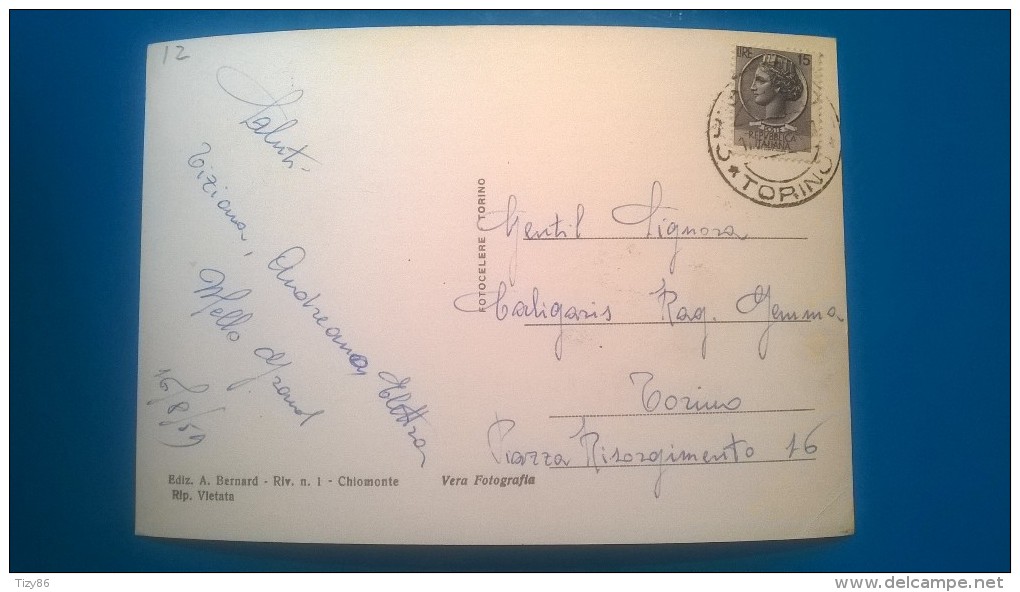 12
Saluti
Tiziana, Andreana, Elettra
Mello Grand
16/8/59
FOTOCELERE TORINO
LIRE 15
POSTE
REPUBBLICA
ITALIANA
TORINO
Gentil Signora
Caligaris Rag. Gemma
Torino
Piazza Risorgimento 16
Ediz. A. Bernard - Riv. n. 1 - Chiomonte
Rip. Vietata
Vera Fotografia
Tizy86
www.delcampe.net